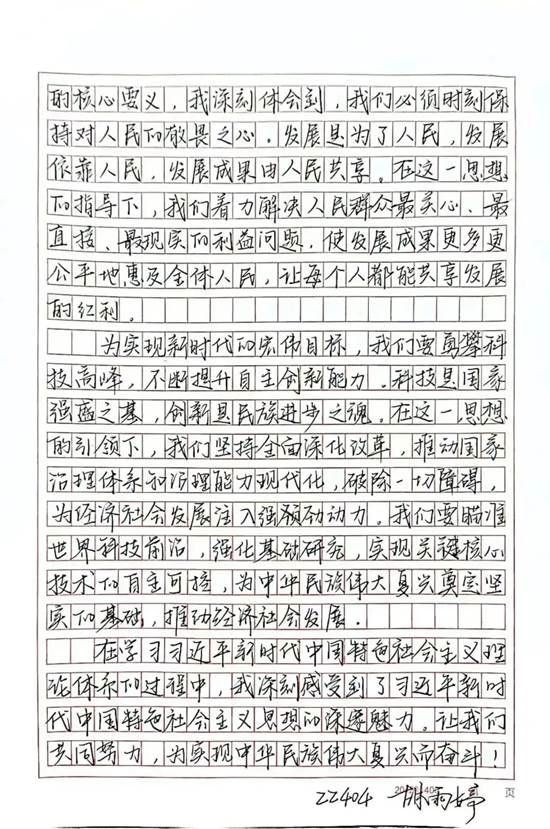 的核心要义，我深刻体会到，我们必须时刻保
持对人民的敬畏之心。发展是为了人民，发展
依靠人民，发展成果由人民共享。在这一思想
的指导下，我们着力解决人民群众最关心、最
直接、最现实的利益问题，使发展成果更多更
公平地惠及全体人民，让每个人都能共享发展
的红利。
为实现新时代的宏伟目标，我们要勇攀科
技高峰，不断提升自主创新能力。科技是国家
强盛之基，创新是民族进步之魂。在这一思想
的引领下，我们坚持全面深化改革，推动国家
治理体系和治理能力现代化，破除一切障碍，
为经济社会发展注入强劲动力。我们要瞄准
世界科技前沿，强化基础研究，实现关键核心
技术的自主可控，为中华民族伟大复兴奠定坚
实的基础，推动经济社会发展。
在学习习近平新时代中国特色社会主义理
论体系的过程中，我深刻感受到了习近平新时
代中国特色社会主义思想的深邃魅力。让我们
共同努力，为实现中华民族伟大复兴而奋斗！
页
22404 胡雨婷